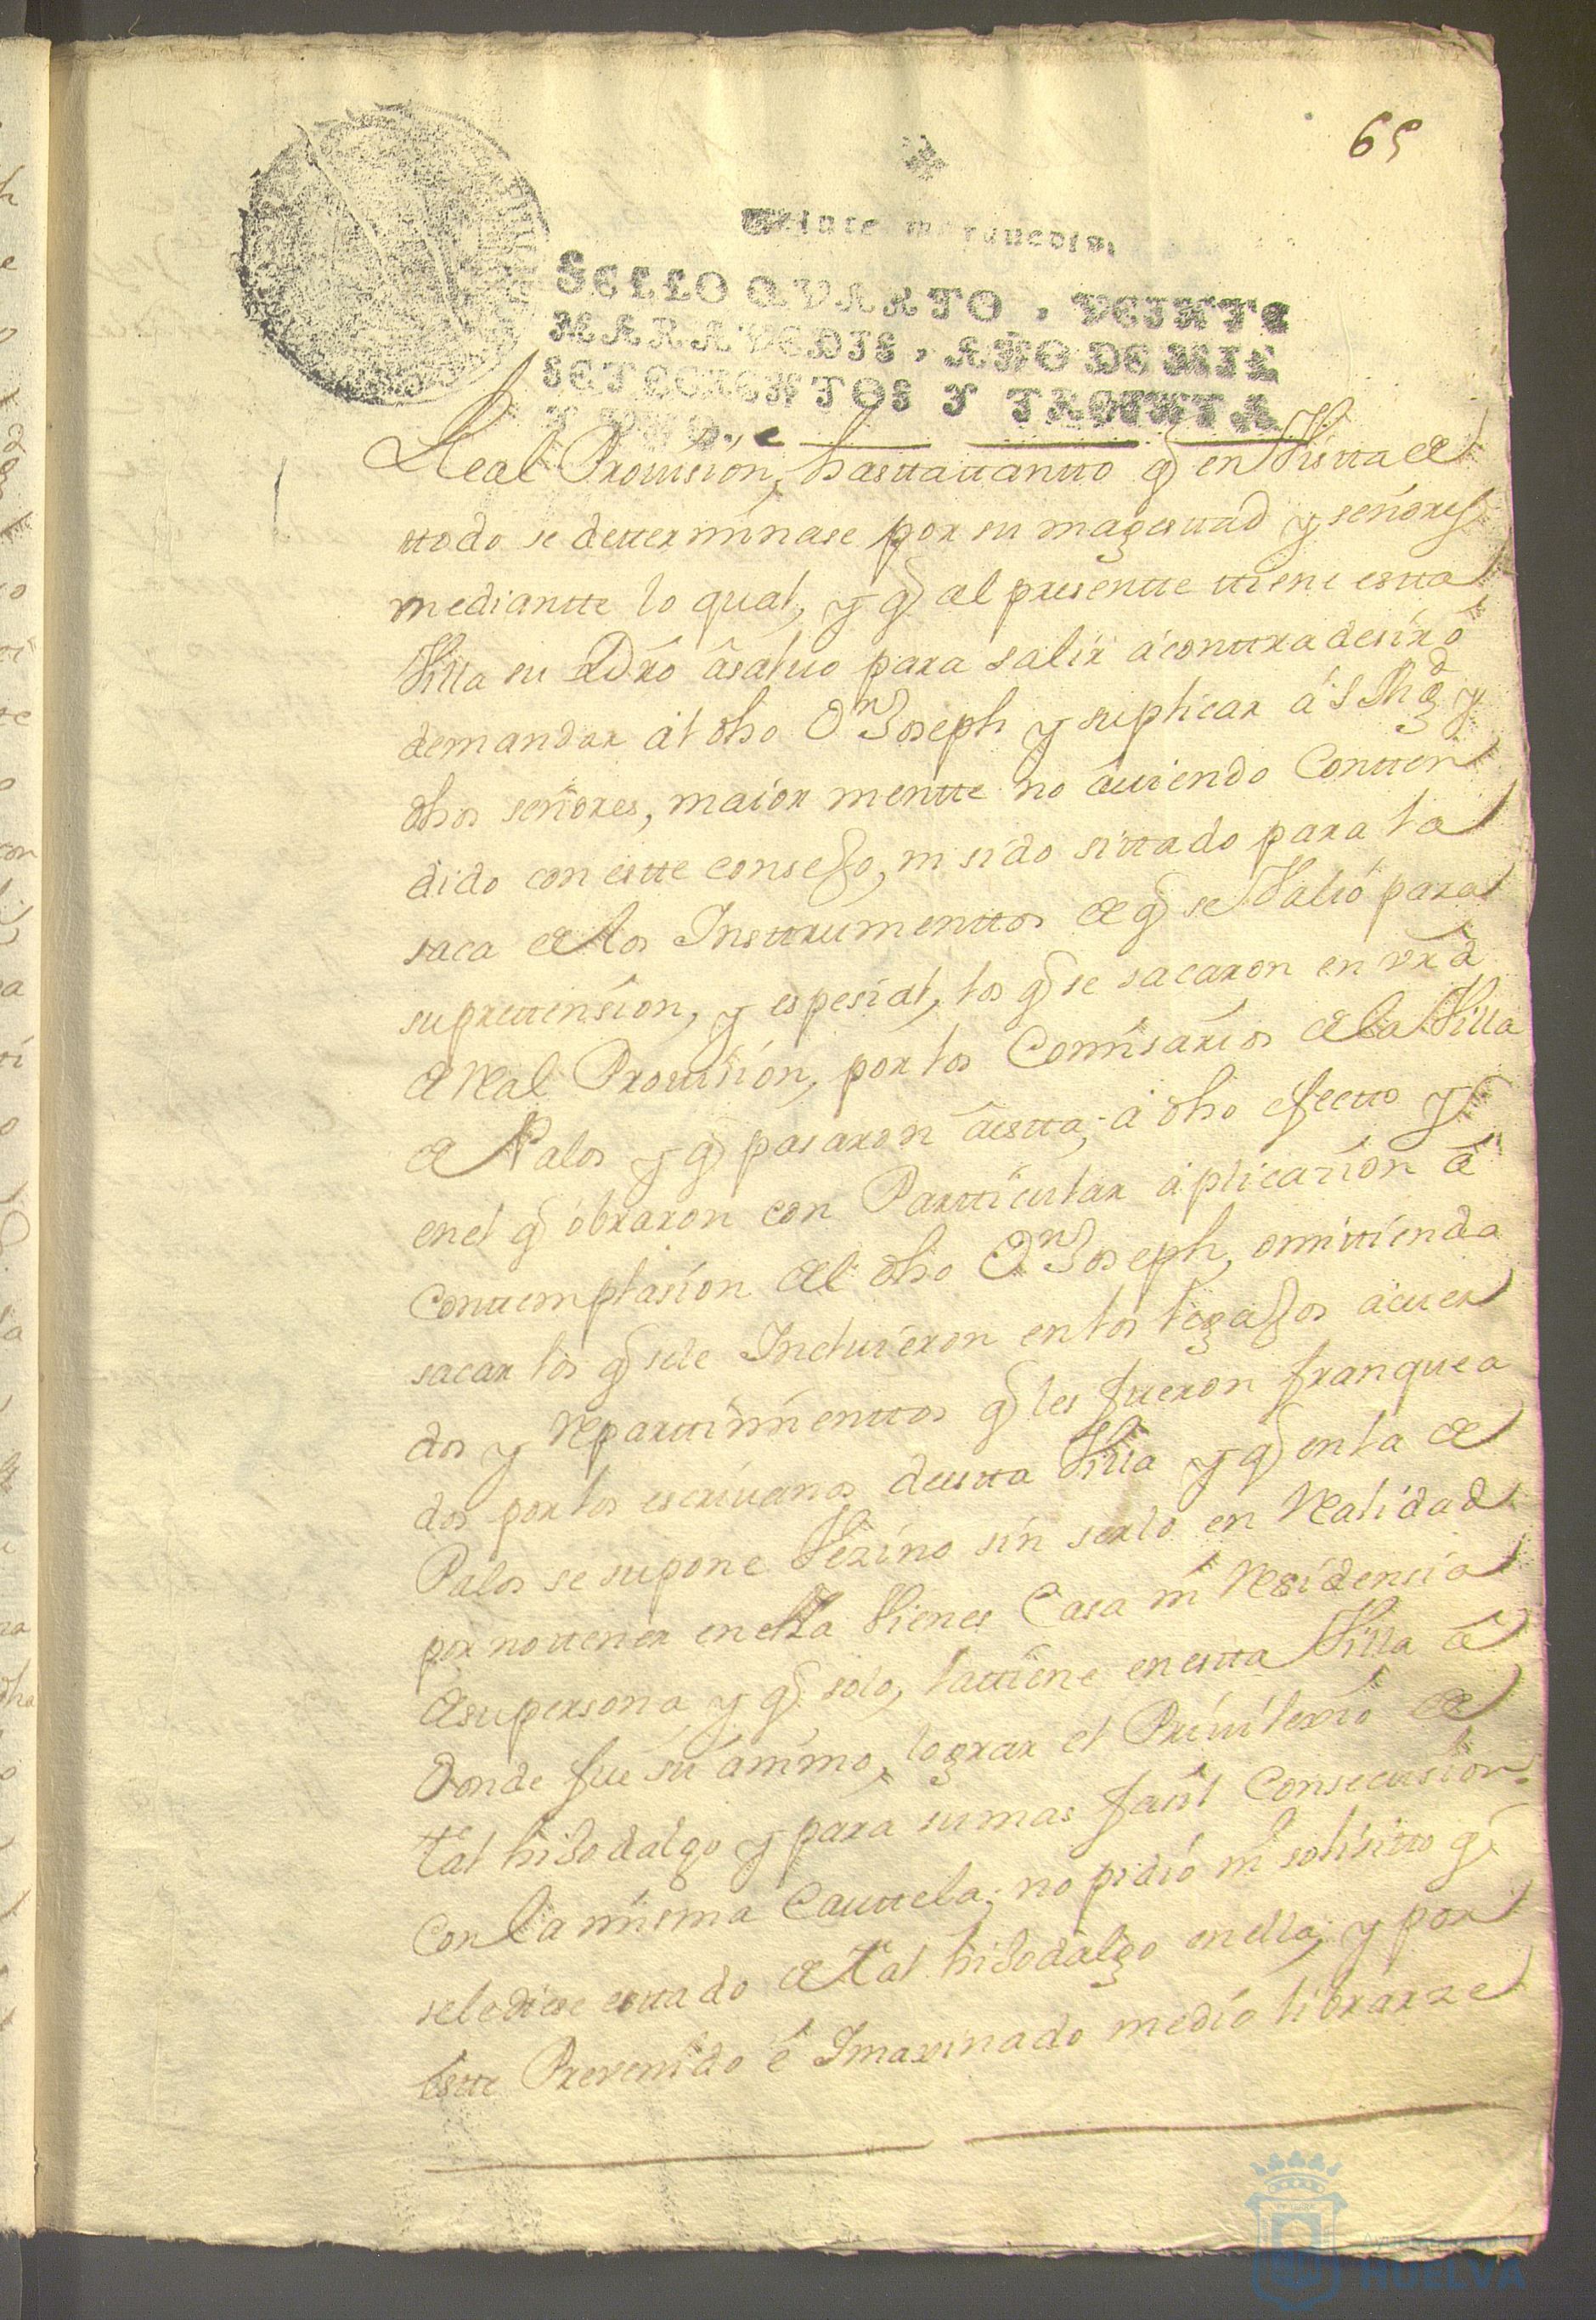 65
Veinte maravedis.
SELLO QVARTO, VEINTE
MARAVEDIS, AÑO DE MIL
SETECIENTOS Y TREINTA
Y VNO.
Real Prouision, hasttattantto q̃ en Vistta de
ttodo se detterminase por su magesttad y señores
mediantte lo qual, y q̃ al presentte ttiene estta
Villa su dro asaluo para salir a conttradesir o
demandar al dho Dn Joseph y suplicar a S Mgd y
dhos señores, maior mentte no auiendo Contten
dido con estte consejo, ni sido sittado para la
saca de los Insttrumenttos de q̃ se Valio para
su prettension, y espesial, los q̃ se sacaron en vrd
de Real Prouision, por los Comisarios de la Villa
de Palos y q̃ pasaron a estta, a dho efectto y
en el q̃ obraron con Partticular aplicazion a
Conttemplasion del dho Dn Joseph, omittiendo
sacar los q̃ se le Incluieron en los legajos acuer
dos y Reparttimienttos q̃ les fueron franquea
dos por los escriuanos de estta Villa y q̃ en la de
Palos se supone Vezino sin serlo en Realidad
por no ttener en ella Vienes Casa ni Residensia
de su persona y q̃ solo, la ttiene en estta Villa a
Donde fue su animo, lograr el Priuilexio de
tal hijodalgo y para su mas fasil Consecusion
Con la misma Cauttela, no pidio ni solisitto q̃
se le diese esttado de tal hijodalgo en ella, y por
estte Prevenido e Imaxinado medio librarze
HUELVA